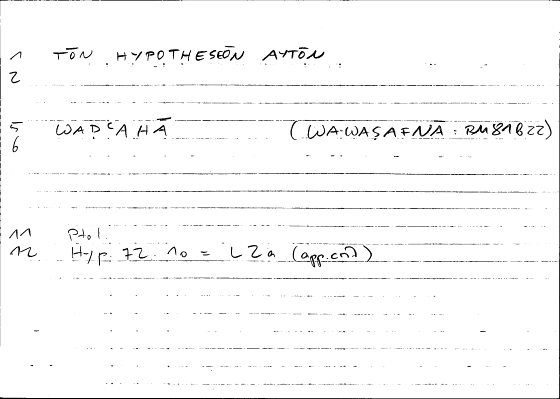 1 TŌN HYPOTHESEŌN AYTŌN
2
5 WADʿAHĀ (WA-WAṢAFNĀ : RM81B22)
6
11 Ptol.
12 Hyp. 72 10 = LZa (app.crit)